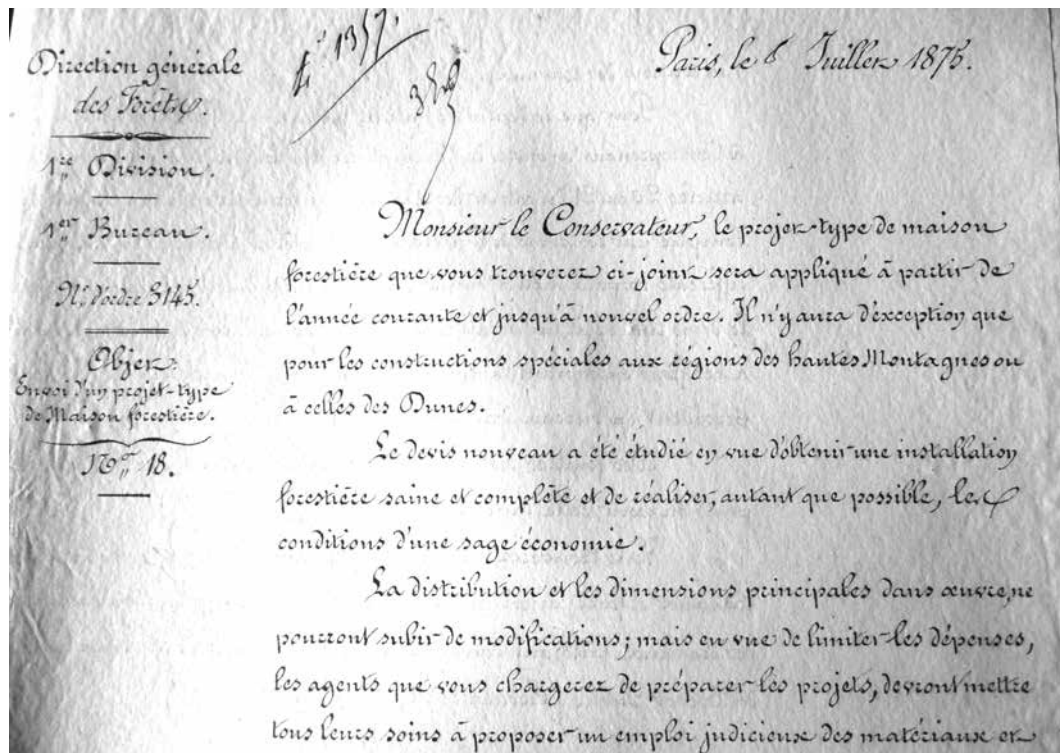 Direction générale
des Forêts.
1re Division.
1er Bureau.
N° d'ordre 3145.
Objet:
Envoi d'un projet-type
de Maison forestière.
N° 18.
1357.
Paris, le 6 Juillet 1875.
Monsieur le Conservateur, le projet-type de maison
forestière que vous trouverez ci-joint sera appliqué à partir de
l'année courante et jusqu'à nouvel ordre. Il n'y aura d'exception que
pour les constructions spéciales aux régions des hautes Montagnes ou
à celles des Dunes.
Le devis nouveau a été étudié en vue d'obtenir une installation
forestière saine et complète et de réaliser, autant que possible, les
conditions d'une sage économie.
La distribution et les dimensions principales dans œuvre, ne
pourront subir de modifications; mais en vue de limiter les dépenses,
les agents que vous chargerez de préparer les projets, devront mettre
tous leurs soins à proposer un emploi judicieux des matériaux et